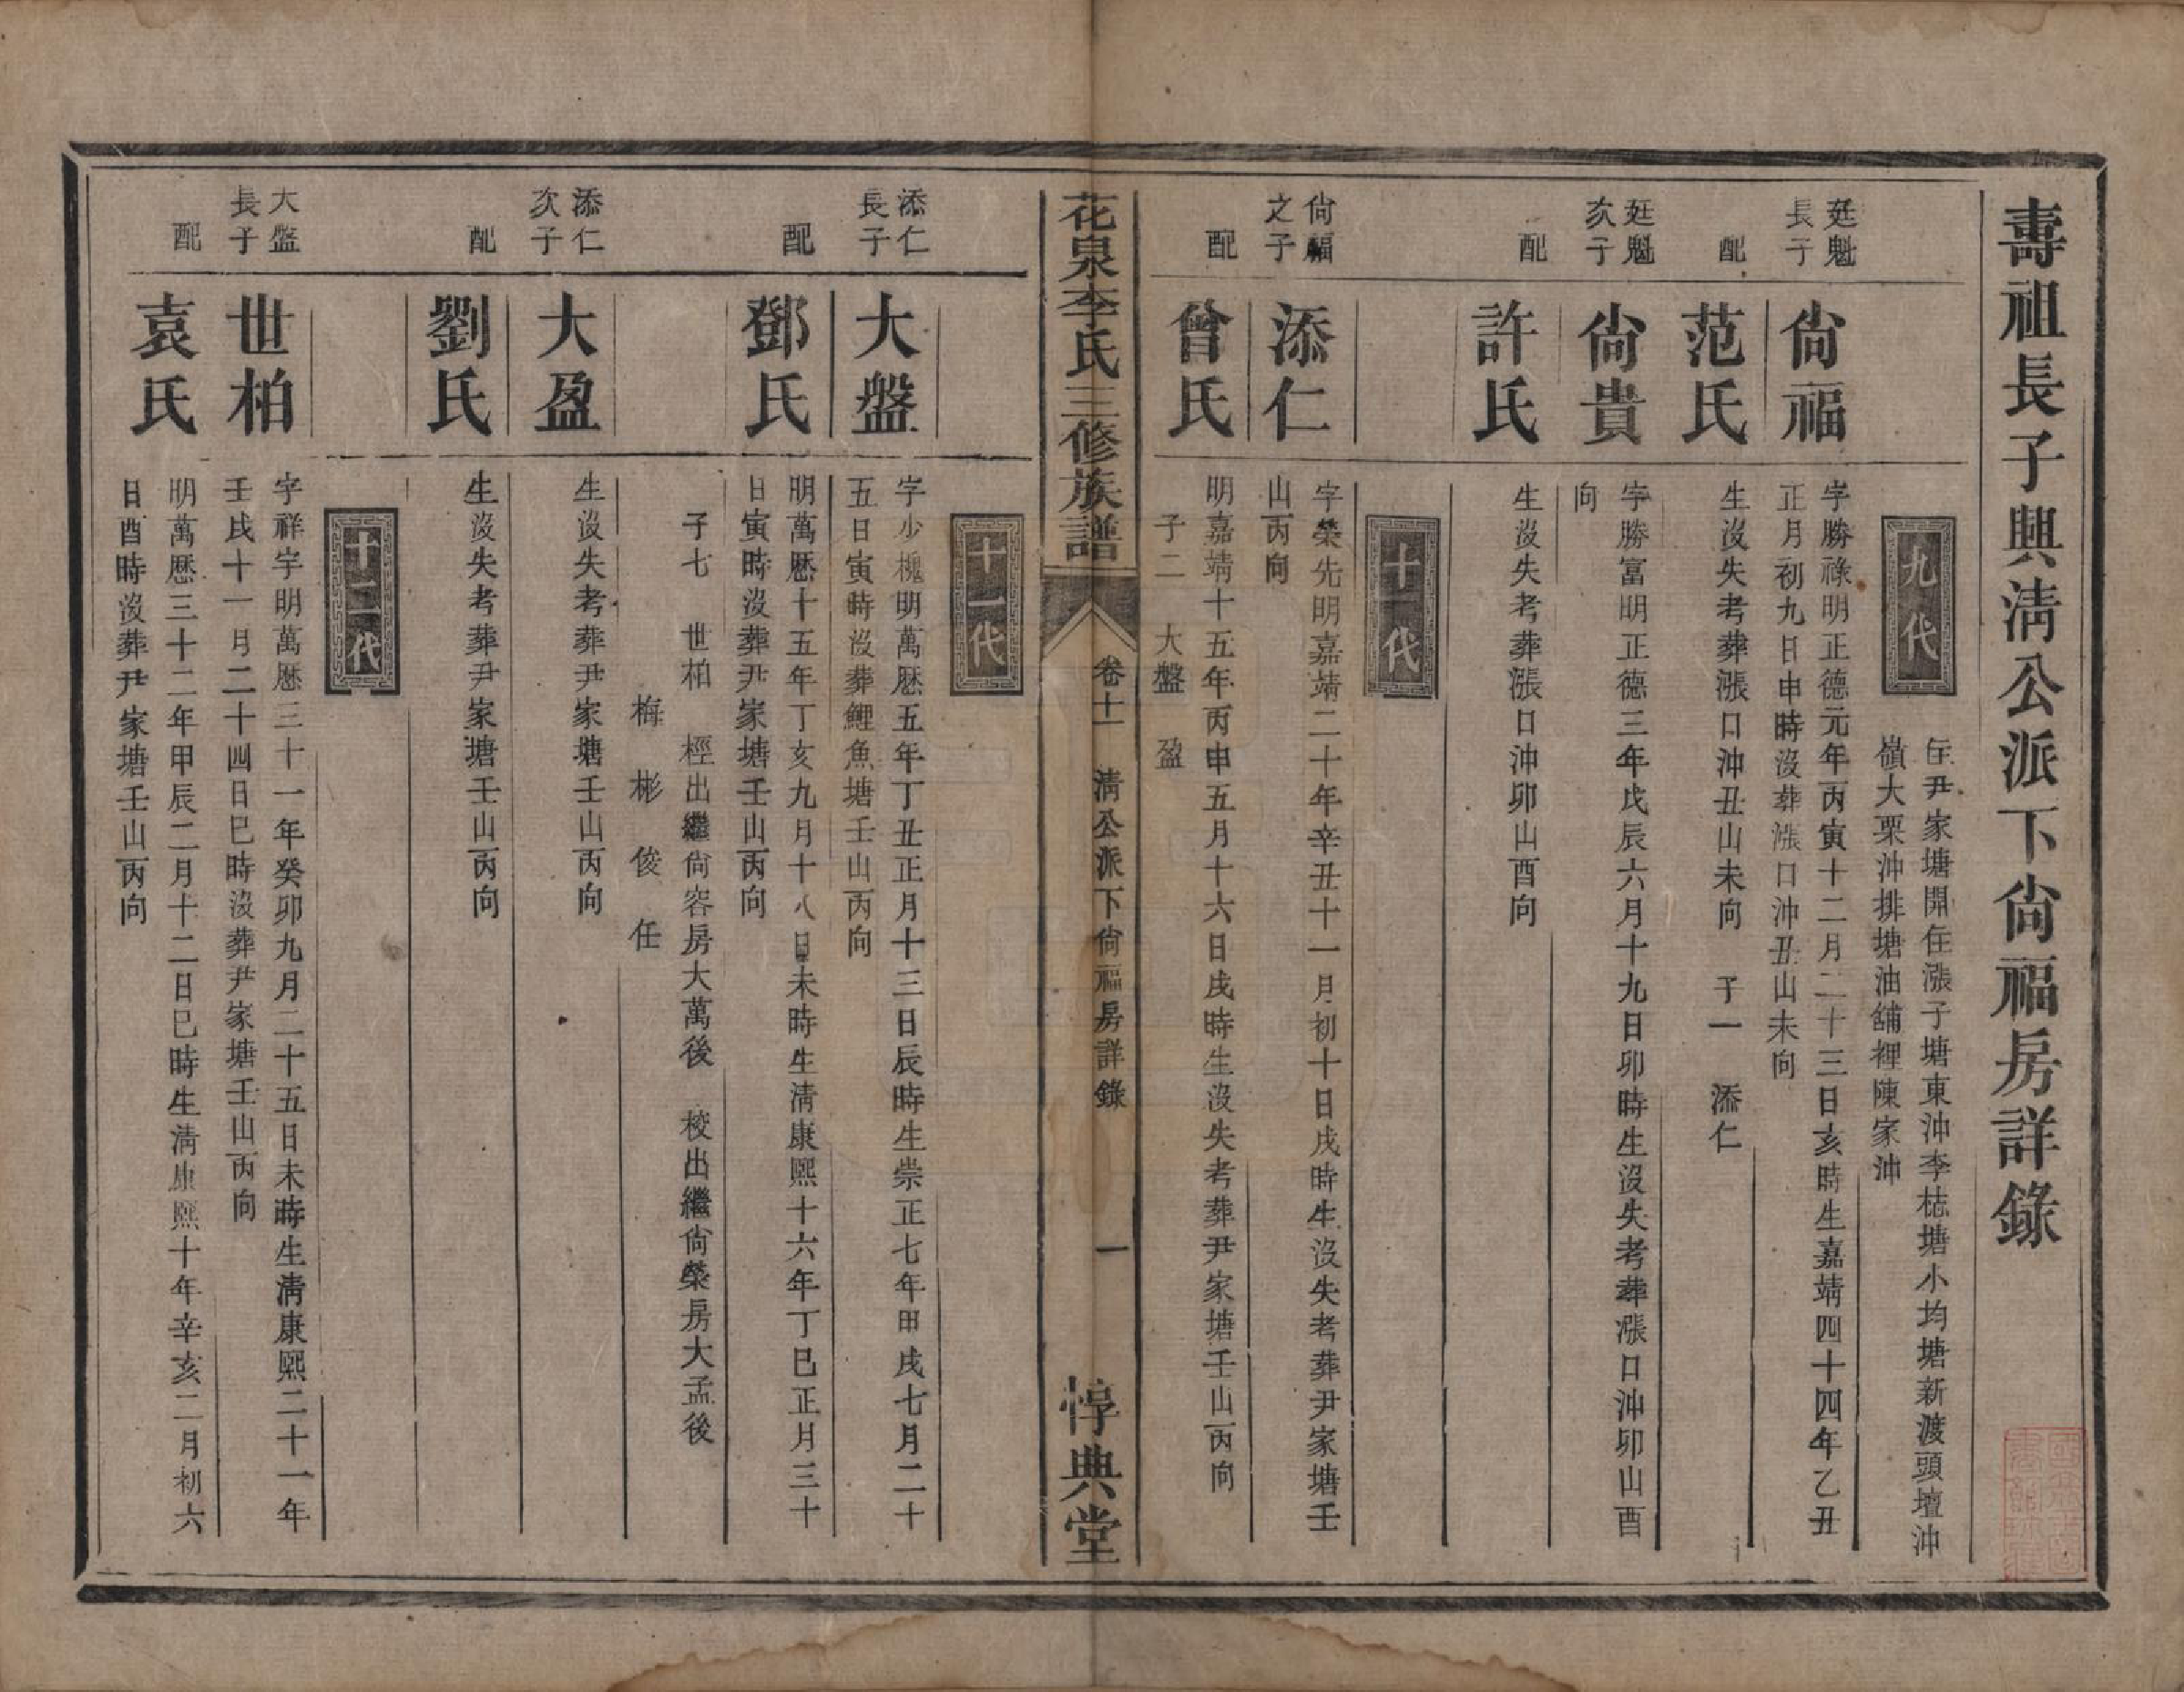 壽祖長子興淸公派下尙福房詳錄
九代
住尹家塘開住漲子塘東沖李梽塘小均塘新渡頭壇沖
嶺大栗沖排塘油舖裡陳家沖
廷魁
長子
尙福
字勝祿明正德元年丙寅十二月二十三日亥時生嘉靖四十四年乙丑
正月初九日申時沒葬漲口沖丑山未向
配
范氏
生沒失考葬漲口沖丑山未向　子一　添仁
廷魁
次子
尙貴
字勝富明正德三年戊辰六月十九日卯時生沒失考葬漲口沖卯山酉
向
配
許氏
生沒失考葬漲口沖卯山酉向
十代
尙福
之子
添仁
字榮先明嘉靖二十年辛丑十一月初十日戌時生沒失考葬尹家塘壬
山丙向
配
曾氏
明嘉靖十五年丙申五月十六日戌時生沒失考葬尹家塘壬山丙向
子二　大盤　盈
花泉李氏三修族譜
卷十一　淸公派下尙福房詳錄　一
惇典堂
十一代
添仁
長子
大盤
字少槐明萬曆五年丁丑正月十三日辰時生崇正七年甲戌七月二十
五日寅時沒葬鯉魚塘壬山丙向
配
鄧氏
明萬曆十五年丁亥九月十八日未時生淸康熙十六年丁巳正月三十
日寅時沒葬尹家塘壬山丙向
子七　世柏　桱出繼尙容房大萬後　校出繼尙榮房大孟後
梅　彬　俊　任
添仁
次子
大盈
生沒失考葬尹家塘壬山丙向
配
劉氏
生沒失考葬尹家塘壬山丙向
十二代
大盤
長子
世柏
字祥宇明萬曆三十一年癸卯九月二十五日未時生淸康熙二十一年
壬戌十一月二十四日巳時沒葬尹家塘壬山丙向
配
袁氏
明萬曆三十二年甲辰二月十二日巳時生淸康熙十年辛亥二月初六
日酉時沒葬尹家塘壬山丙向